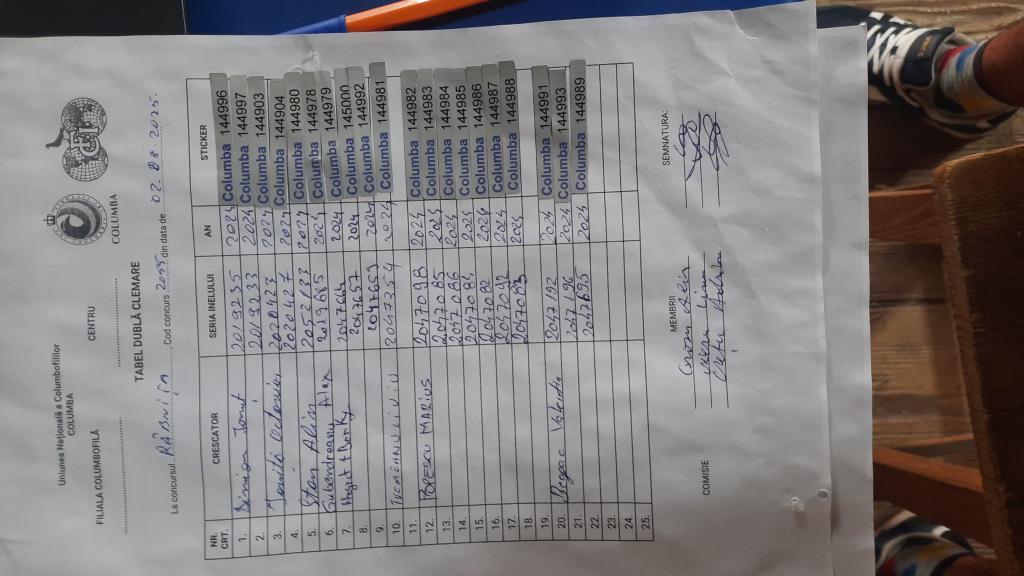 Uniunea Națională a Columbofililor
COLUMBA
FILIALA COLUMBOFILĂ CENTRU COLUMBA
TABEL DUBLĂ CLEMARE
La concursul Râșnița, Cod concurs din data de 02.08.2025.
NR. CRT. CRESCATOR SERIA INELULUI AN STICKER
1. Ionuț 2019235 2024 Columba 144996
2. 2019233 2024 Columba 144997
3. Ioniță Octavian 2020423 2024 Columba 144903
4. 2020427 2024 Columba 144904
5. Stan Alin 2052133 2024 Columba 144980
6. Alex 2019885 2024 Columba 144978
7. 2047664 2024 Columba 144979
8. 2047657 2024 Columba 145000
9. 2047669 2024 Columba 144992
10. 2047354 2024 Columba 144981
11. Popescu MARIUS 2047098 2024 Columba 144982
12. 2047085 2024 Columba 144983
13. 2047086 2024 Columba 144984
14. 2047084 2024 Columba 144985
15. 2047082 2024 Columba 144986
16. 2047092 2024 Columba 144987
17. 2024 Columba 144988
18.
19. 2047192 2024 Columba 144991
20. 2047196 2024 Columba 144993
21. 2047695 2024 Columba 144989
22.
23.
24.
25.
COMISIE MEMBRII SEMNATURA: